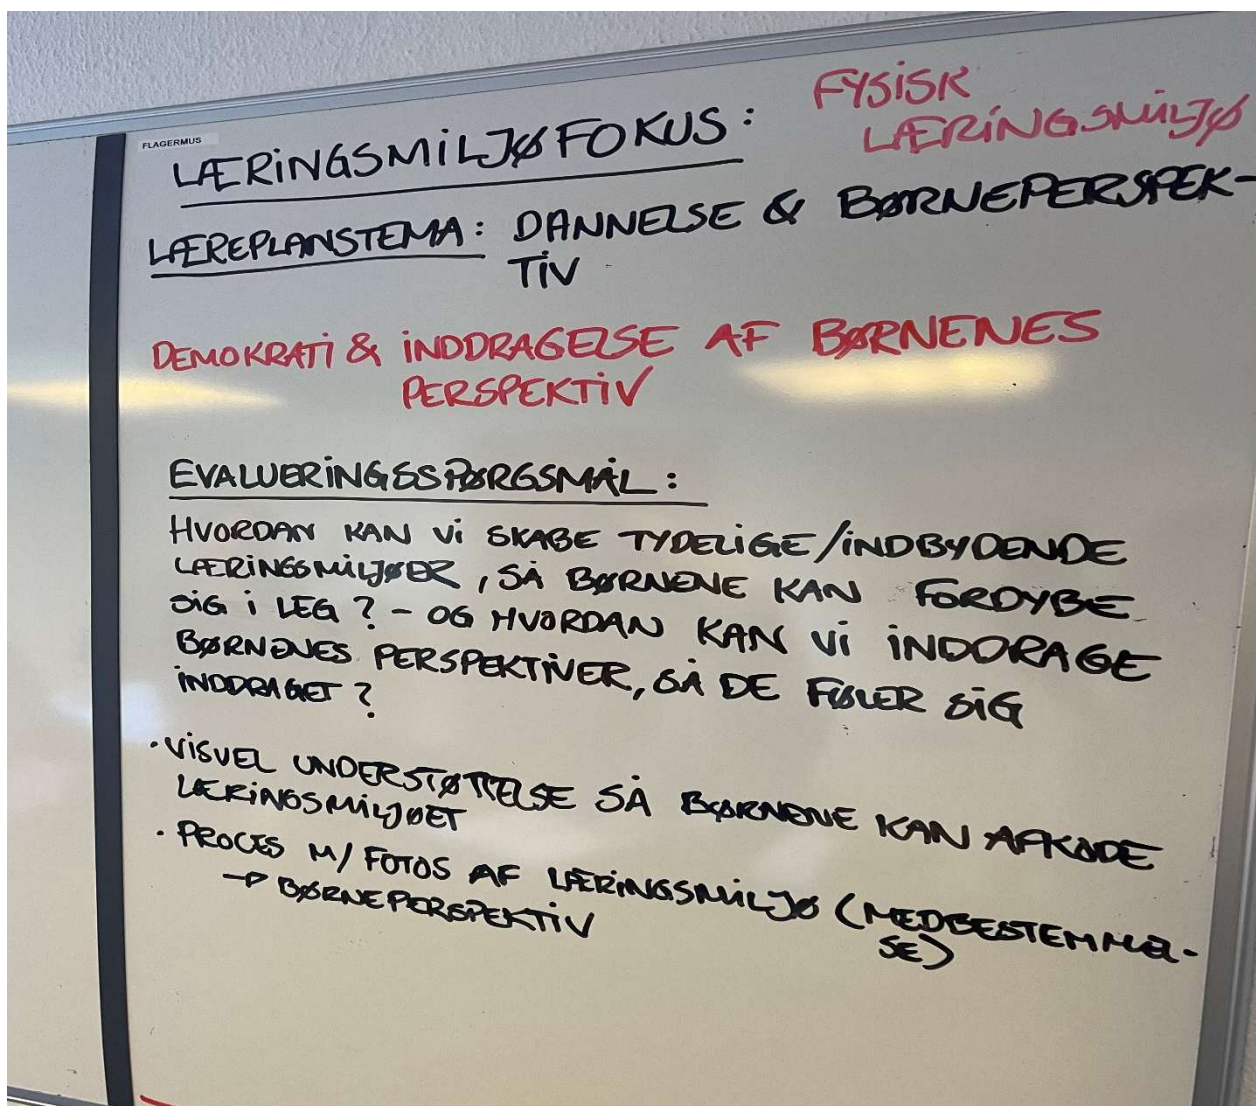 FLAGERMUS
LÆRINGSMILJØFOKUS: FYSISK
LÆRINGSMILJØ
LÆREPLANSTEMA: DANNELSE & BØRNEPERSPEK-
TIV
DEMOKRATI & INDDRAGELSE AF BØRNENES
PERSPEKTIV
EVALUERINGSSPØRGSMÅL:
HVORDAN KAN VI SKABE TYDELIGE/INDBYDENDE
LÆRINGSMILJØER, SÅ BØRNENE KAN FORDYBE
SIG I LEG? - OG HVORDAN KAN VI INDDRAGE
BØRNENES PERSPEKTIVER, SÅ DE FØLER SIG
INDDRAGET?
· VISUEL UNDERSTØTTELSE SÅ BØRNENE KAN AFKODE
LÆRINGSMILJØET
· PROCES M/ FOTOS AF LÆRINGSMILJØ (MEDBESTEMMEL-
SE)
→ BØRNEPERSPEKTIV